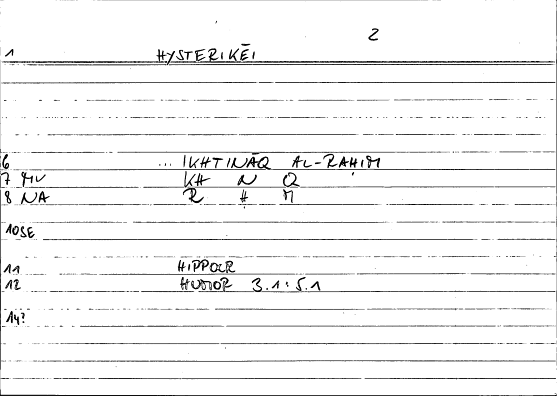 2
1 HYSTERIKĒI
6 ... IKHTINĀQ AL-RAḤIM
7 MV KH N Q
8 NA R Ḥ M
10SE
11 HIPPOCR
12 HUMOR 3.1:5.1
14?